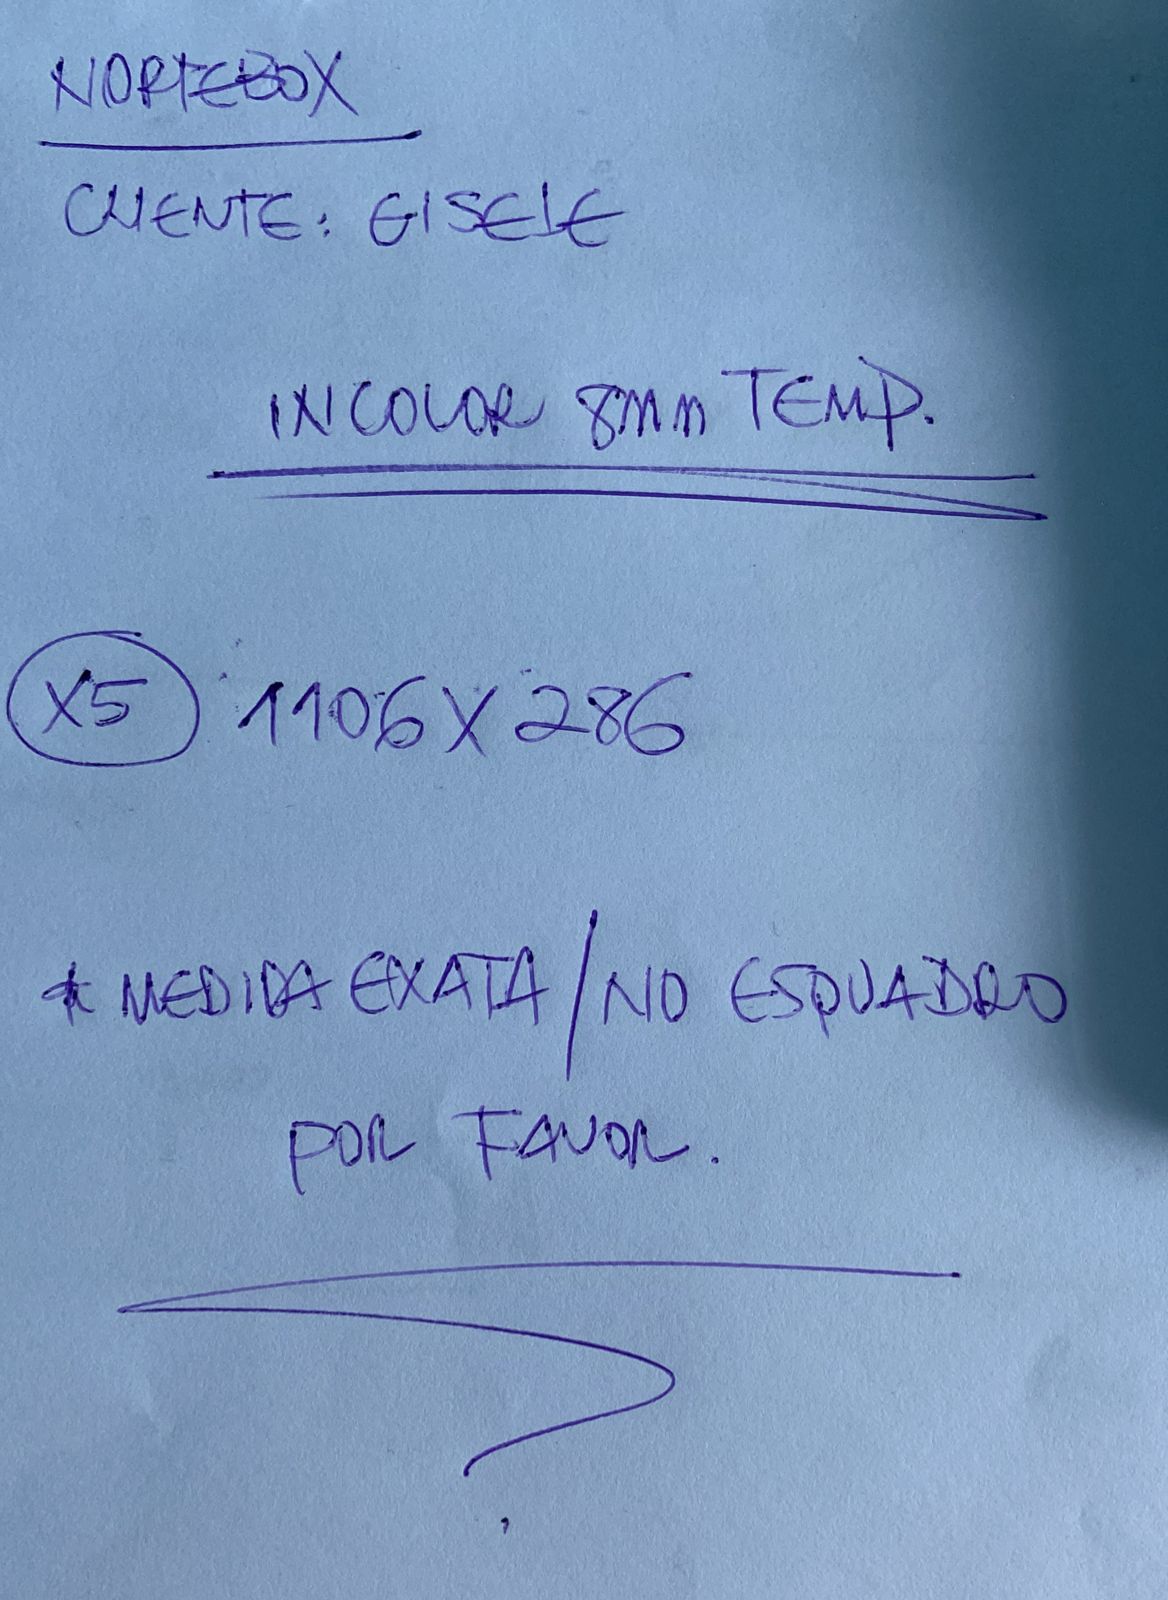 NORTEBOX
CLIENTE: GISELE
INCOLOR 8mm TEMP.
X5 1106 X 286
* MEDIDA EXATA / NO ESQUADRO
POR FAVOR.